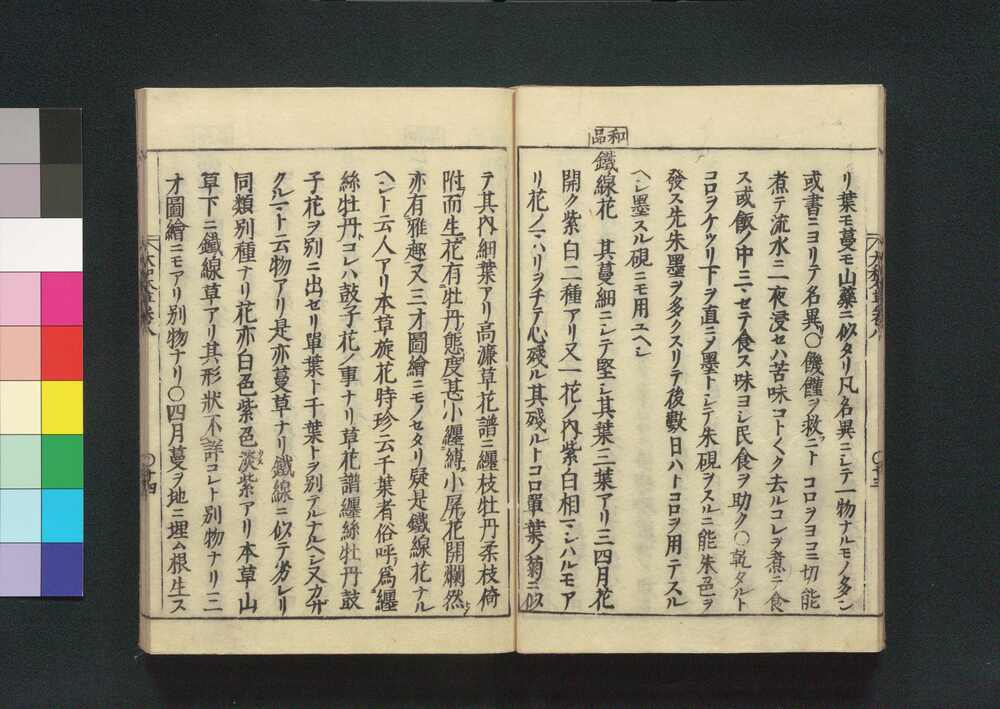 リ葉モ蔓モ山藥ニ似タリ凡名異ニシテ一物ナルモノ多シ
或書ニヨリテ名異〇饑饉ヲ救ニトコロヲヨコニ切能
煮テ流水ニ一夜浸セハ苦味コトくク去ルコレヲ煮ニ食
ス或飯ノ中ニマセテ食ス味ヨシ民食ヲ助ク〇乾タルト
コロヲケツリ下ヲ直ニメ墨トシテ朱硯ヲスルニ能朱邑ヲ
發ス先朱墨ヲ多クスリテ後數日ハトコロヲ用テスル
ヘシ墨スル硯ニモ用ユヘシ
和品
鐵線花 其蔓細ニシテ堅シ其葉三葉アリ三四月花
開ク紫白二種アリ又一花ノ内紫白相マシハルモア
リ花ノマハリヲチテ心殘ル其殘ルトコロ單葉ノ菊ニ似
テ其内細葉アリ高濂草花譜ニ纏枝牡丹柔枝倚
附而生花有牡丹態度甚小纏縛小屏花開爛然
亦有雅趣又三才圖繪ニモノセタリ疑是鐵線花ナル
ヘシト云人アリ本草旋花時珍云千葉者俗呼爲纏
絲牡丹コレハ鼓子花ノ事ナリ草花譜纏絲牡丹鼓
子花ヲ別ニ出セリ單葉ト千葉トヲ別テルナルヘシ又カザ
クルマト云物アリ是亦蔓草ナリ鐵線ニ似テ劣レリ
同類別種ナリ花亦白邑紫邑淡紫アリ本草山
草下ニ鐵線草アリ其形狀不詳コレト別物ナリ三
才圖繪ニモアリ別物ナリ〇四月蔓ヲ地ニ埋ム根生ス